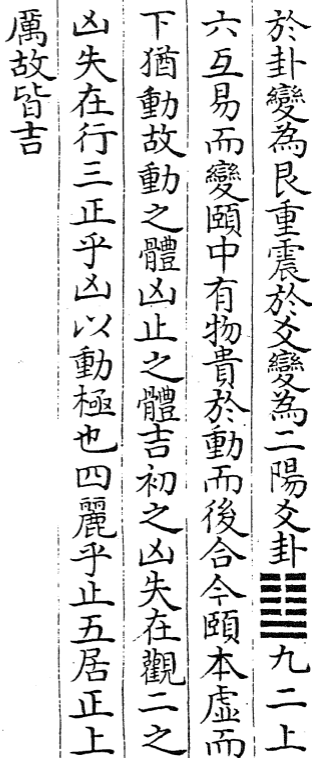 於卦變為艮重震於爻變為二陽爻卦䷒九二上
六互易而變頤中有物貴於動而後合今頤本虛而
下猶動故動之體凶止之體吉初之凶失在觀二之
凶失在行三正乎凶以動極也四麗乎止五居正上
厲故皆吉